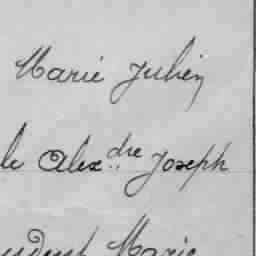 Marie Julien
le Alexdre Joseph
Marie